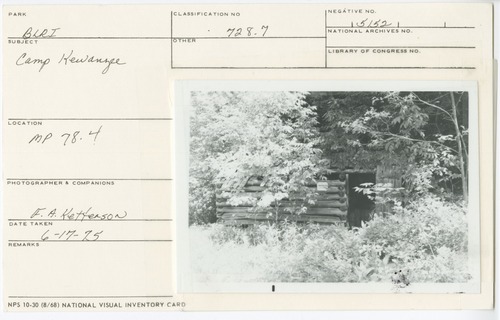 PARK
BLRI
CLASSIFICATION NO
728.7
NEGATIVE NO.
5152
SUBJECT
Camp Kewanzee
OTHER
NATIONAL ARCHIVES NO.
LIBRARY OF CONGRESS NO.
LOCATION
MP 78.4
PHOTOGRAPHER & COMPANIONS
F. A. Ketterson
DATE TAKEN
6-17-75
REMARKS
NPS 10-30 (8/68) NATIONAL VISUAL INVENTORY CARD